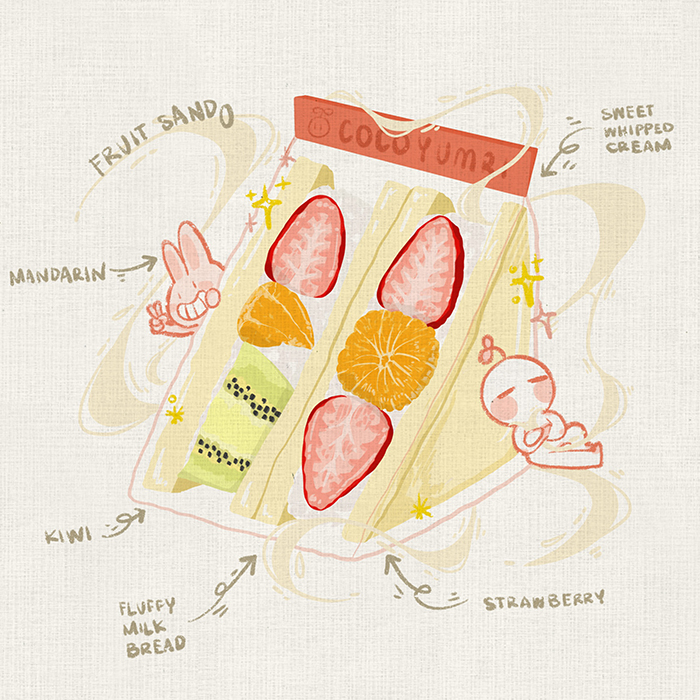 FRUIT SANDO
COCOYUMA.
SWEET
WHIPPED
CREAM
MANDARIN
KIWI
FLUFFY
MILK
BREAD
STRAWBERRY